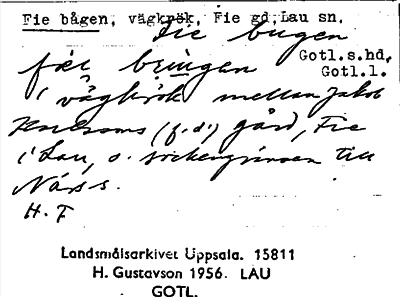 Fie bågen, vägkrök, Fie gd, Lau sn.
Fie bugen
Gotl.s.hd,
Gotl.l.
i vägkrök mellan Jakob
Karlssons (f.d.) gård, Fie
i Lau, o. sockengränsen till
När s.
H. F
Landsmålsarkivet Uppsala. 15811
H. Gustavson 1956. LAU
GOTL.